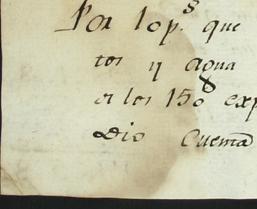 Por lo p.s que
tos y agua
a los 150 exp
Dio Cuenta